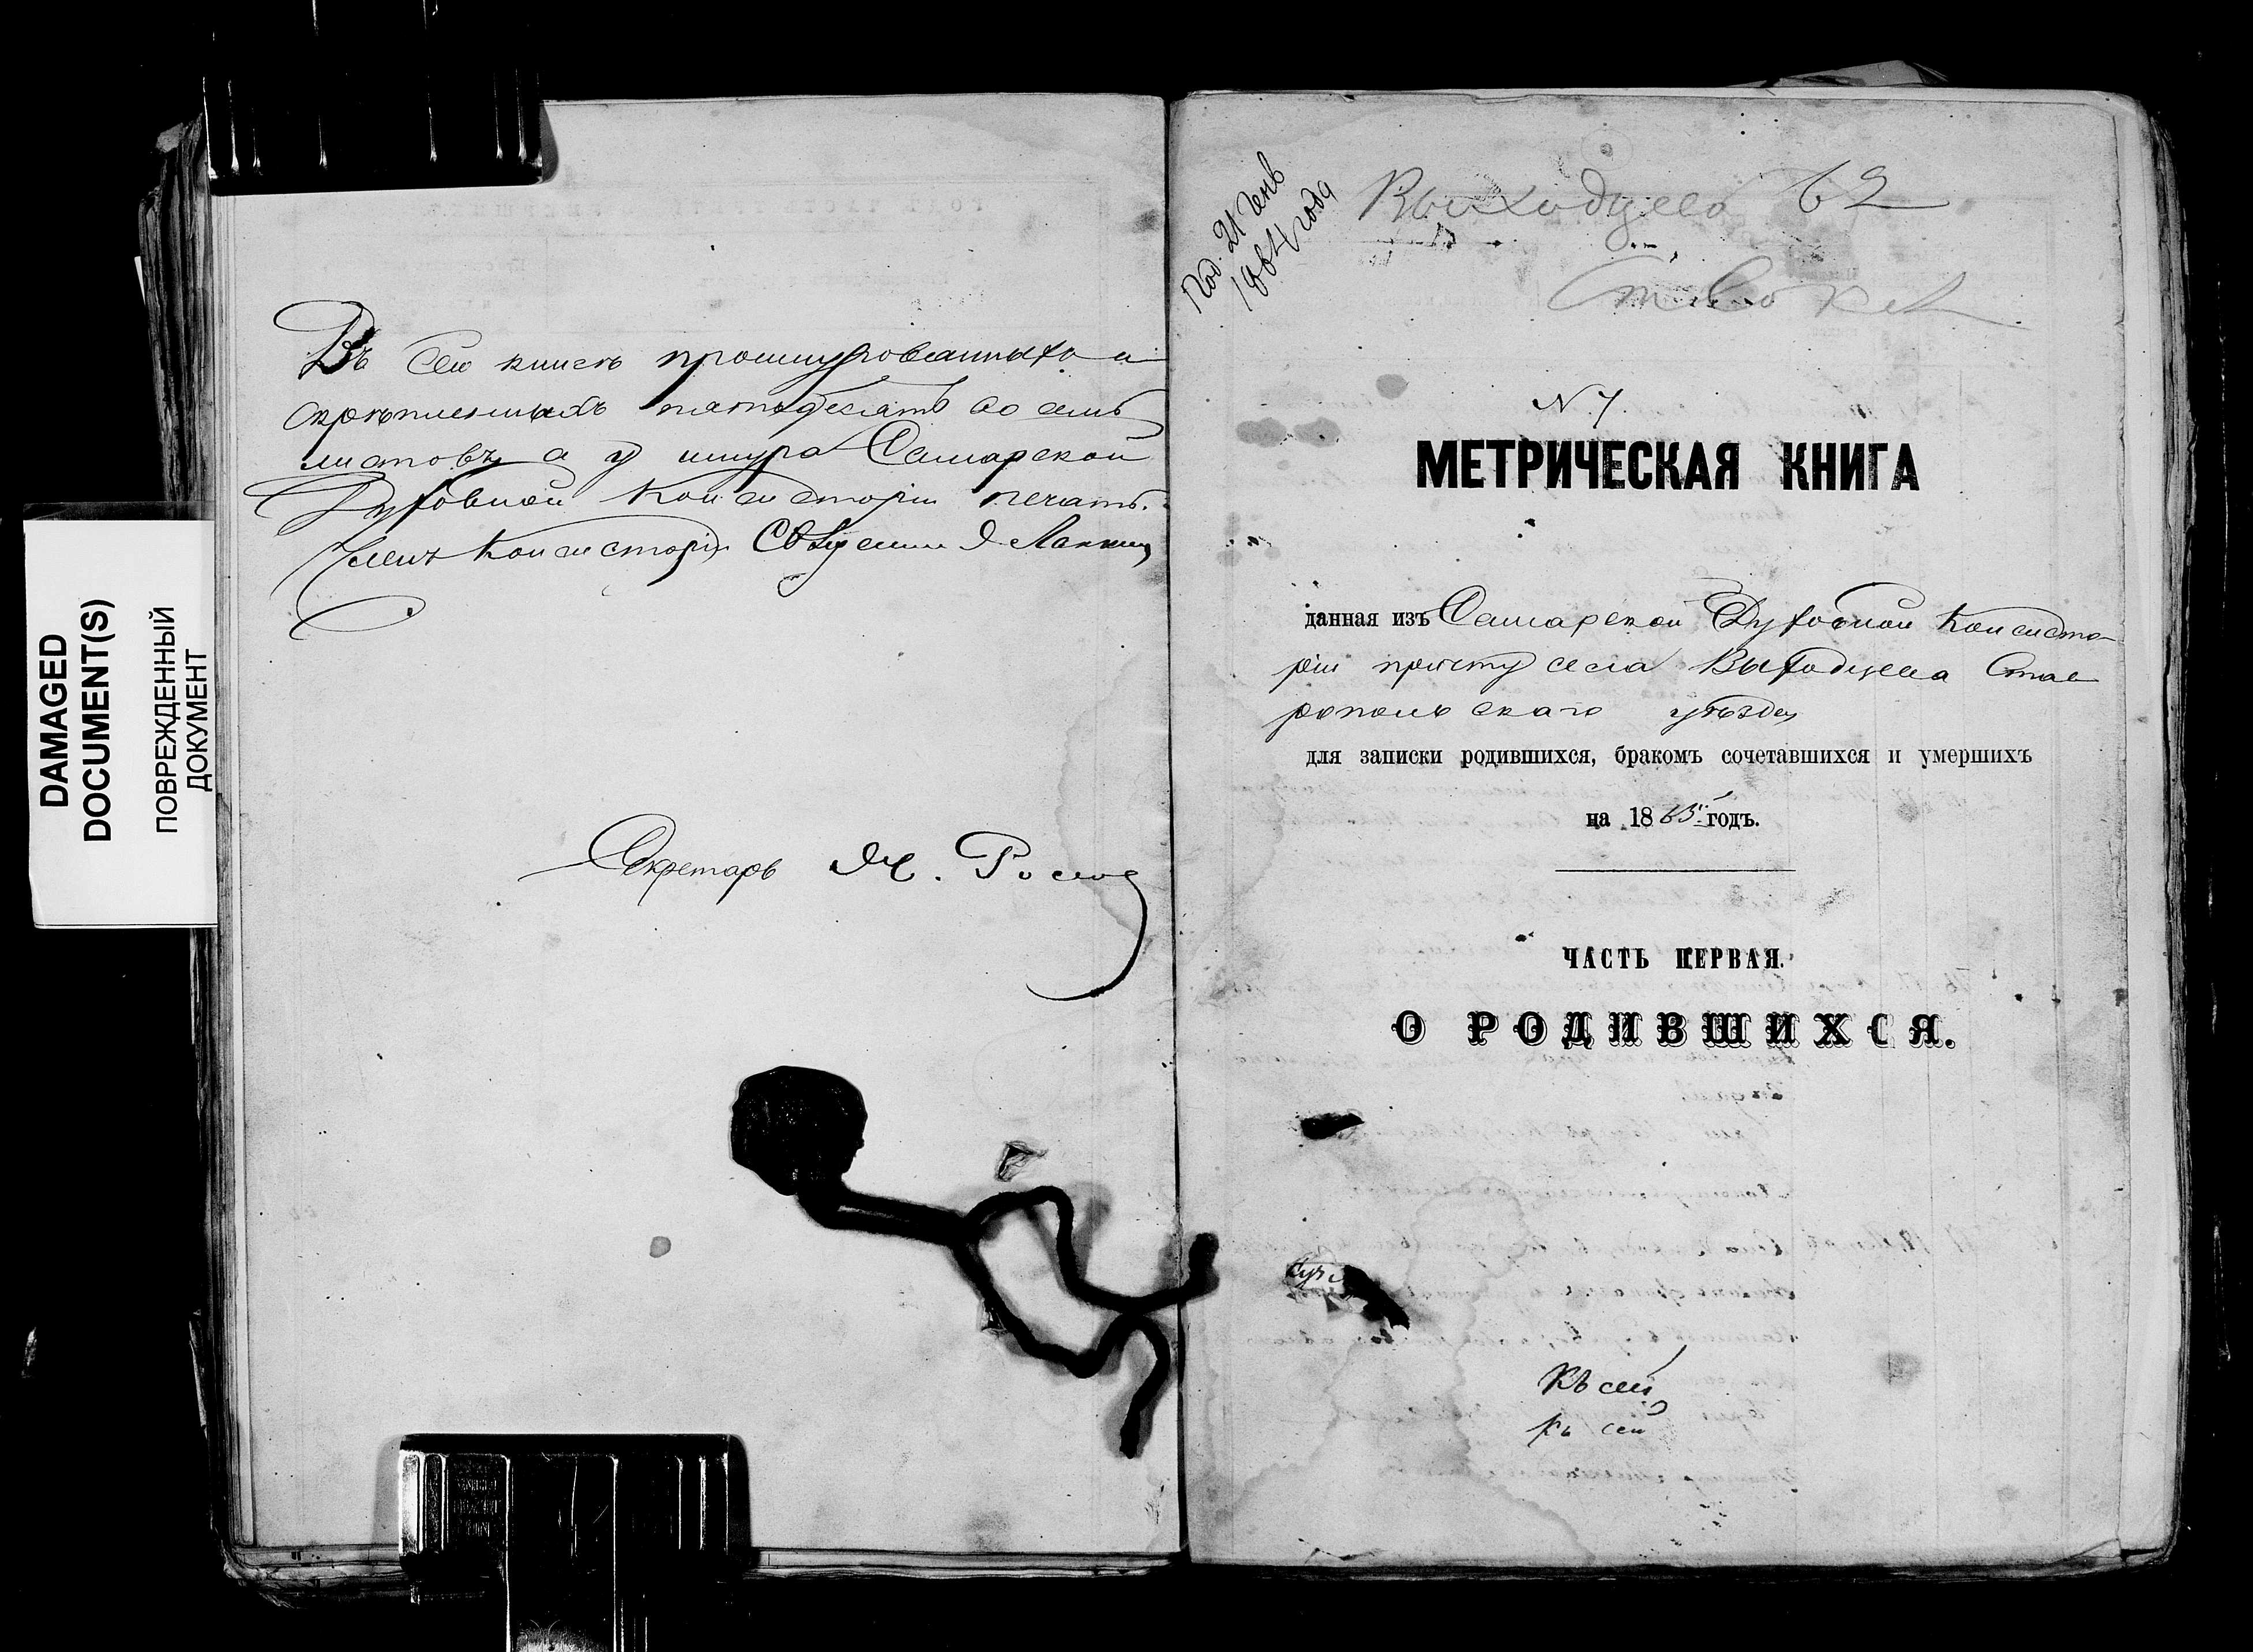 DAMAGED
DOCUMENT(S)
ПОВРЕЖДЕННЫЙ
ДОКУМЕНТ
Въ сей книгѣ прошнурованныхъ и
скрѣпленныхъ пятьдесятъ восемь
листовъ, а у шнура Самарской
Духовной Консисторіи печать.
Членъ Консисторіи Священникъ
Секретарь
21 Генв
1864 года
Выходцево 62
N. 7.
МЕТРИЧЕСКАЯ КНИГА
данная изъ Самарской Духовной Консисто-
ріи причту села Выходцева Став
ропольскаго уѣзда
для записки родившихся, бракомъ сочетавшихся и умершихъ
на 1863 годъ.
ЧАСТЬ ПЕРВАЯ.
О РОДИВШИХСЯ.
Къ сей
къ сей